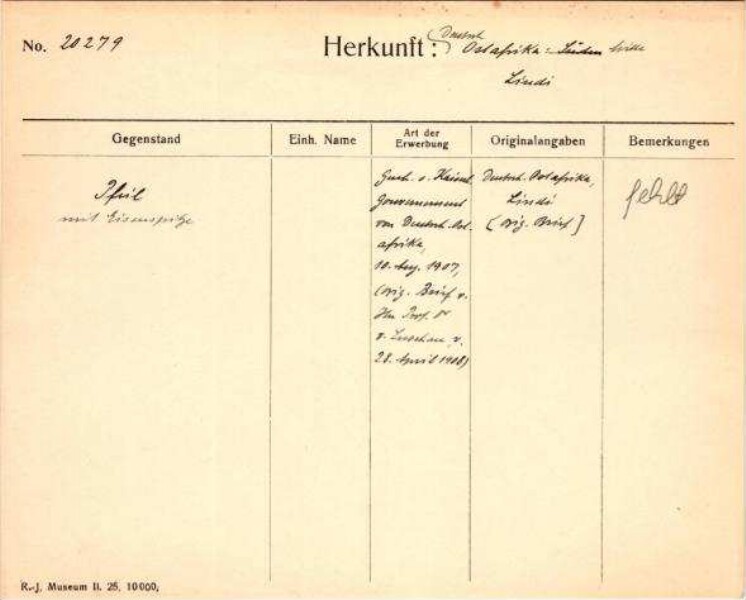 No. 20279
Herkunft: Deutsch Ostafrika: Süden
Lindi
Gegenstand
Einh. Name
Art der Erwerbung
Originalangaben
Bemerkungen
Pfeil
mit Eisenspitze
Gesch. v. Kaiserl.
Gouvernement
von Deutsch-Ost-
afrika,
10. Aug. 1907,
(orig. Brief v.
Hn Prof. Dr
v. Luschan, v.
28. April 1908)
Deutsch-Ostafrika,
Lindi
(orig. Brief]
fehlt
R.-J. Museum II. 25, 10000,